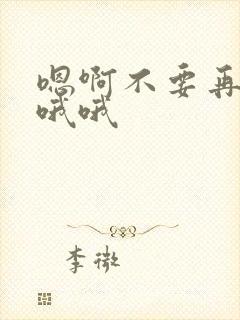 嗯啊不要再
哦哦
李微